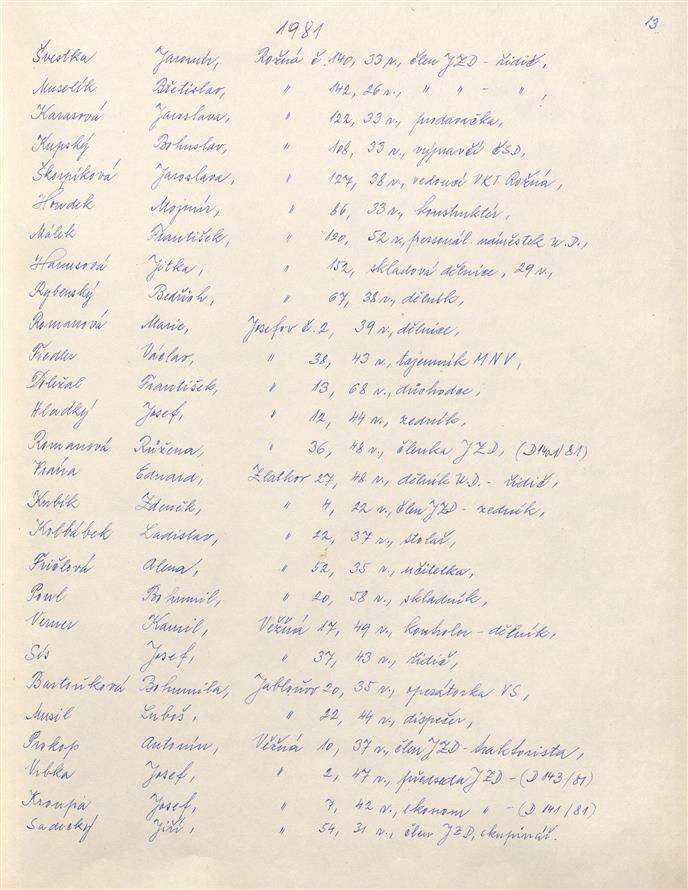 1981
13
Švestka Jaromír, Rožná č. 140, 33 r., člen JZD - řidič,
Muselík Břetislav, " 142, 26 r., " " - " ,
Karasová Jaroslava, " 122, 33 r., prodavačka,
Kupský Bohuslav, " 108, 33 r., výpravčí ČSD,
Škorpíková Jaroslava, " 127, 38 r., vedoucí VKT Rožná,
Houdek Mojmír, " 86, 33 r., konstruktér,
Málek František, " 120, 52 r., personál. náměstek U.D.,
Hanusová Jitka, " 152, skladová dělnice, 29 r.,
Rybenský Bedřich, " 67, 38 r., dělník,
Romanová Marie, Josefov č. 2, 39 r., dělnice,
Fiedler Václav, " 38, 43 r., tajemník MNV,
Doležal František, " 13, 68 r., důchodce,
Hladký Josef, " 12, 44 r., zedník,
Romanová Růžena, " 36, 48 r., členka JZD, (D 142/81)
Vrána Eduard, Zlatkov 27, 48 r., dělník U.D. - řidič,
Kubík Zdeněk, " 4, 22 r., člen JZD - zedník,
Kolbábek Ladislav, " 22, 37 r., stolař,
Fričlová Alena, " 52, 35 r., učitelka,
Bohumil, " 20, 58 r., skladník,
Verner Kamil, Věžná 17, 49 r., kontrolor - dělník,
Sis Josef, " 37, 43 r., řidič,
Bartoňková Bohumila, Jabloňov 20, 35 r., operátorka VS,
Musil Luboš, " 22, 44 r., dispečer,
Prokop Antonín, Věžná 10, 37 r., člen JZD - traktorista,
Vrbka Josef, " 2, 47 r., předseda JZD - (D 143/81)
Kroupa Josef, " 7, 42 r., ekonom " - (D 141/81)
Sadecký Jiří, " 54, 31 r., člen JZD, skupinář.